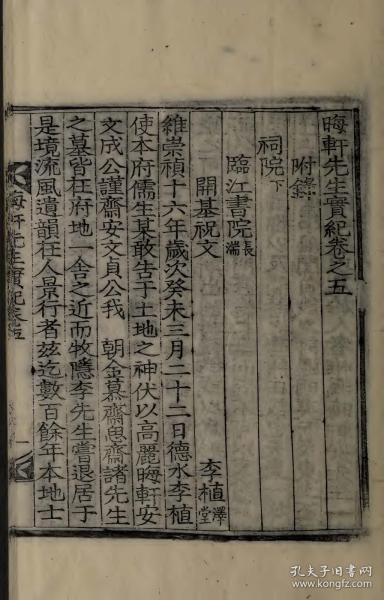 晦軒先生實紀卷之五
附錄
祠院下
臨江書院長湍
開基祝文 李植澤堂
維崇禎十六年歲次癸未三月二十二日德水李植
使本府儒生某敢告于土地之神伏以高麗晦軒安
文成公謹齋安文貞公我 朝金慕齋思齋諸先生
之墓皆在府地一舍之近而牧隱李先生嘗退居于
是境流風遺韻在人景行者玆迄數百餘年本地士
晦軒先生實紀卷五
一
孔夫子旧书网